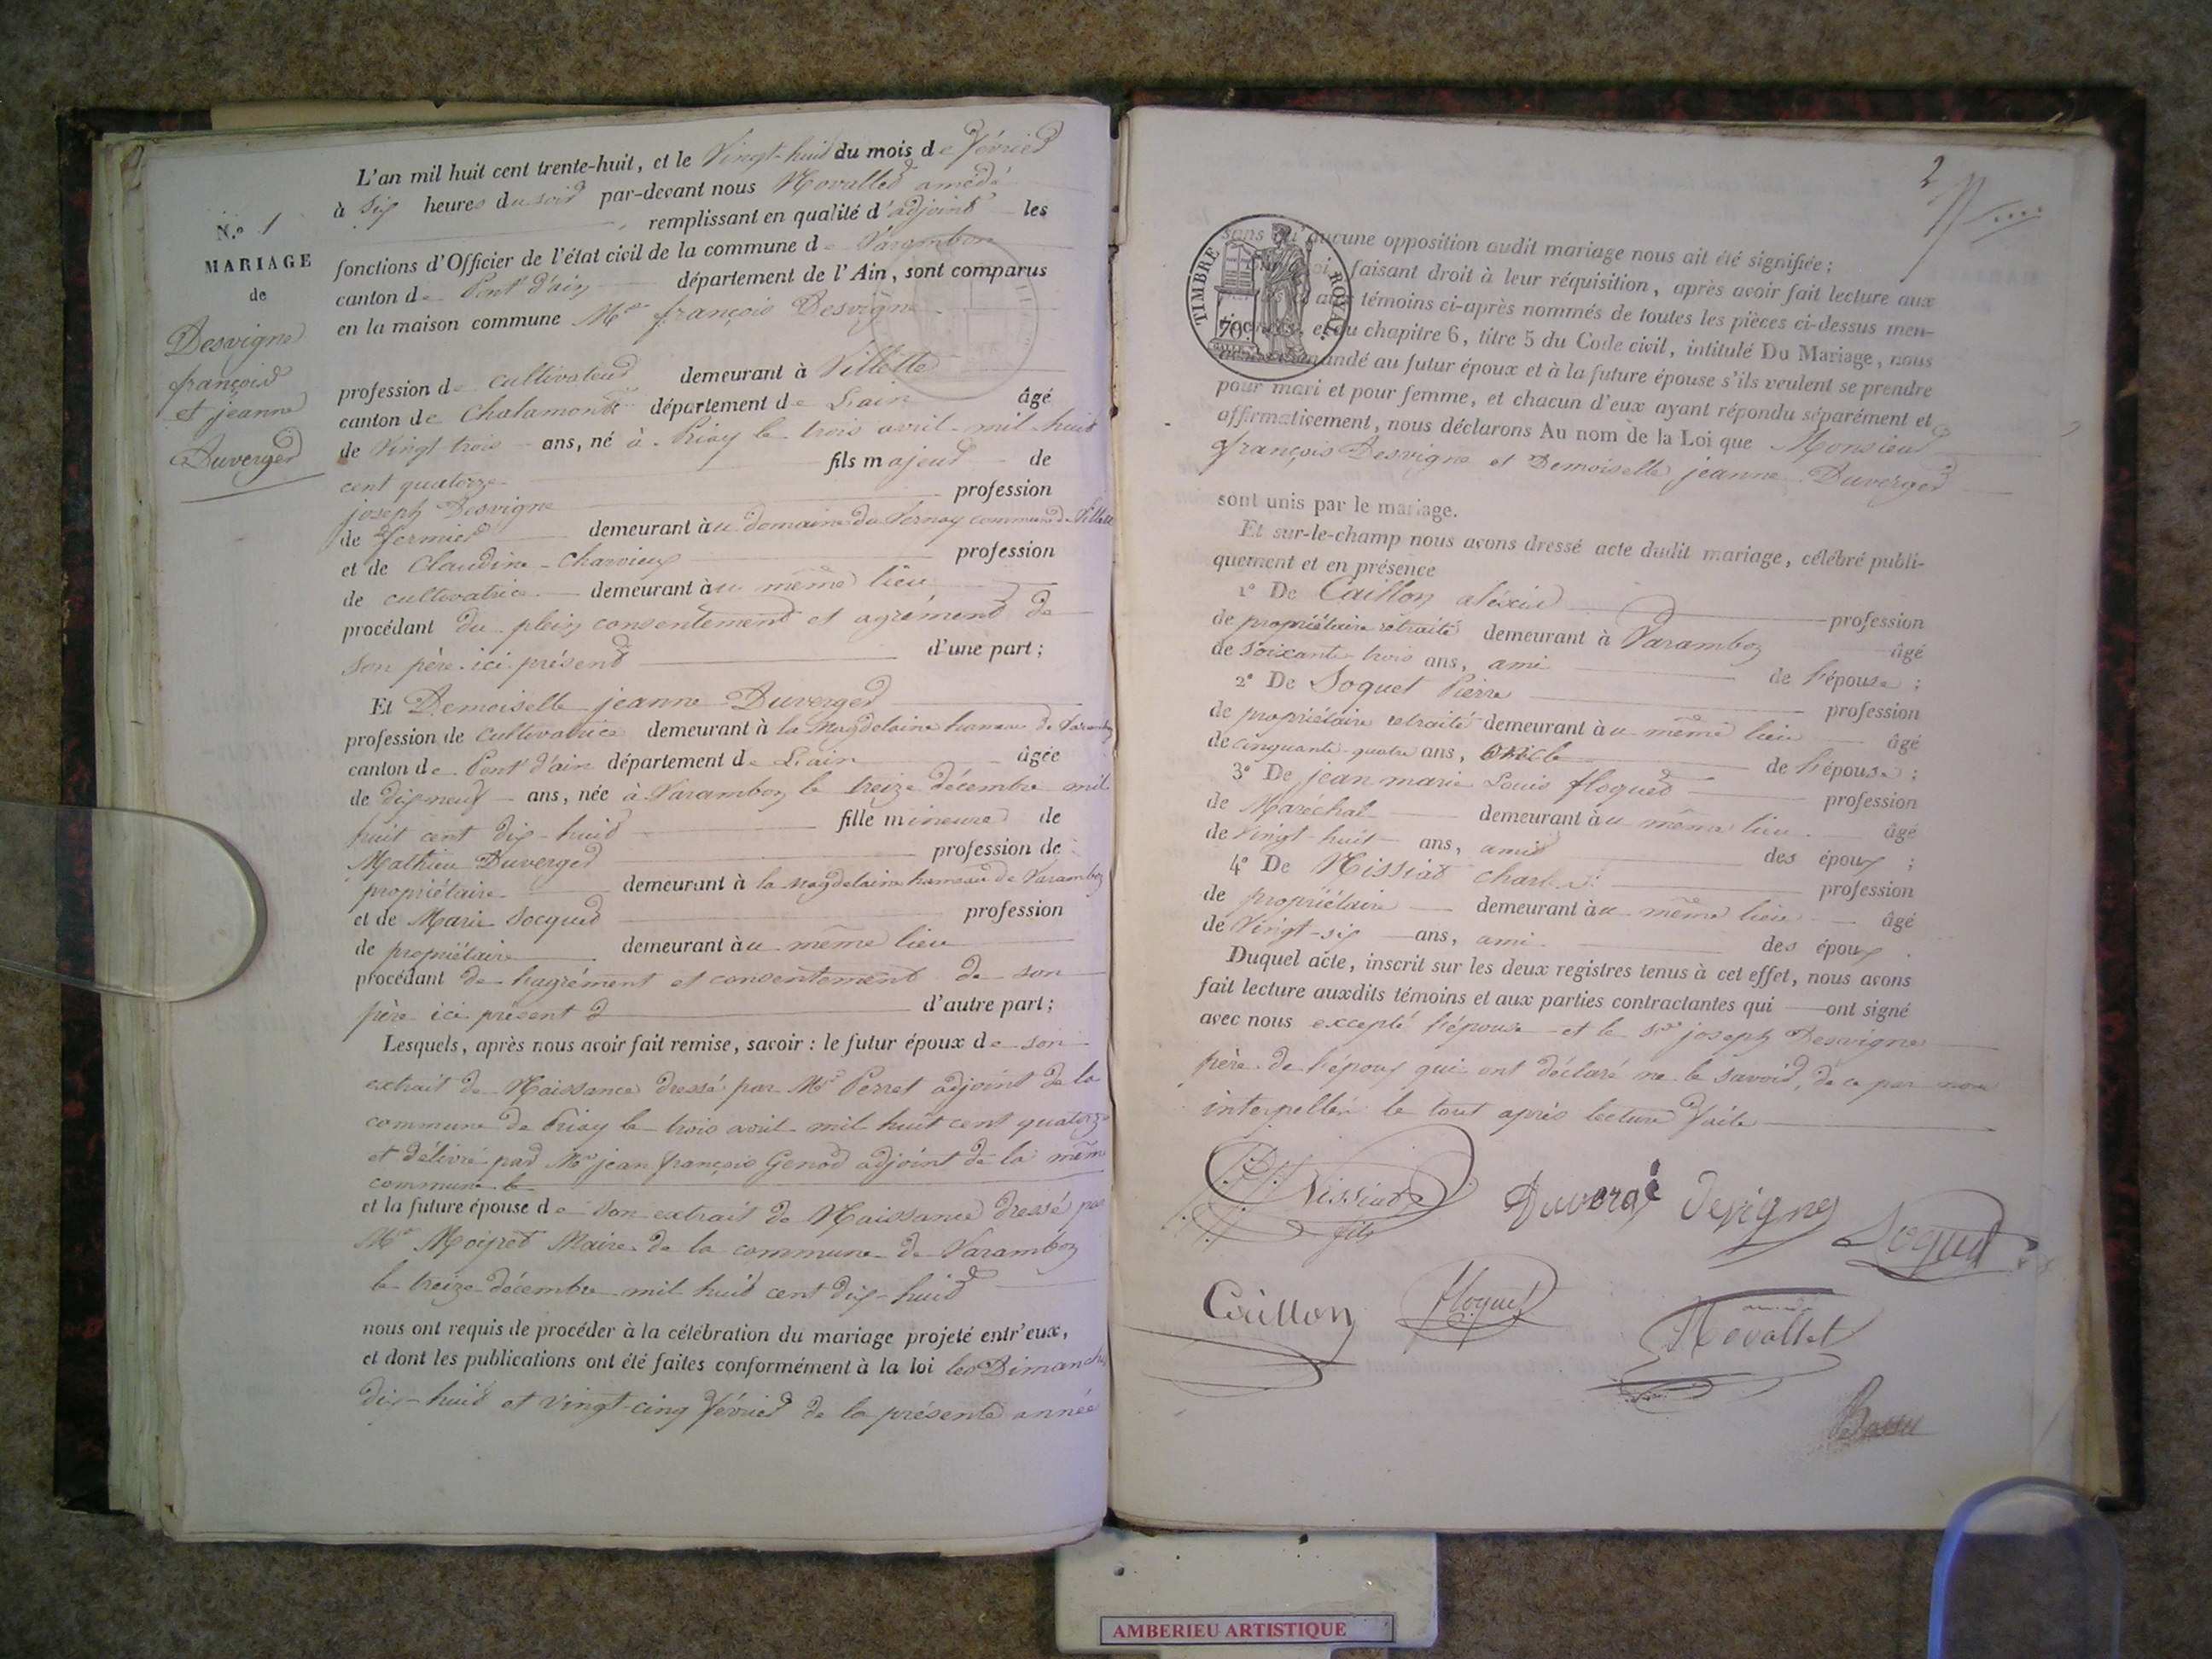 N.o 1
MARIAGE
de
Desvigne
françois
et jeanne
Duverger
L'an mil huit cent trente-huit, et le Vingt-huit du mois de février
à six heures du soir par-devant nous Novallet amédé
remplissant en qualité d'adjoint les
fonctions d'Officier de l'état civil de la commune de Varambon
canton de Pont d'ain département de l'Ain, sont comparus
en la maison commune Mr françois Desvigne
profession de cultivateur demeurant à Villette
canton de Chalamont département de L'ain âgé
de Vingt trois ans, né à Priay le trois avril mil huit
cent quatorze fils majeur de
joseph Desvigne profession
de fermier demeurant au domaine du Vernay commune de Villette
et de Claudine Charvieux profession
de cultivatrice demeurant au même lieu
procédant du plein consentement et agrément de
son père ici présent d'une part;
Et Demoiselle jeanne Duverger
profession de cultivatrice demeurant à la Magdelaine hameau de Varambon
canton de Pont d'ain département de L'ain âgée
de dixneuf ans, née à Varambon le treize décembre mil
huit cent dix-huit fille mineure de
Mathieu Duverger profession de
propriétaire demeurant à la Magdelaine hameau de Varambon
et de Marie Socquet profession
de propriétaire demeurant au même lieu
procédant de l'agrément et consentement de son
père ici présent d'autre part;
Lesquels, après nous avoir fait remise, savoir: le futur époux de son
extrait de Naissance dressé par Mr Perret adjoint de la
commune de Priay le trois avril mil huit cent quatorze
et délivré par Mr jean françois Genod adjoint de la même
commune le
et la future épouse de son extrait de Naissance dressé par
Mr Maire de la commune de Varambon
le treize décembre mil huit cent dix-huit
nous ont requis de procéder à la célébration du mariage projeté entr'eux,
et dont les publications ont été faites conformément à la loi les Dimanches
dix-huit et vingt-cinq février de la présente année
2
TIMBRE ROYAL
70
sans qu'aucune opposition audit mariage nous ait été signifiée;
faisant droit à leur réquisition, après avoir fait lecture aux
aux témoins ci-après nommés de toutes les pièces ci-dessus men-
et du chapitre 6, titre 5 du Code civil, intitulé Du Mariage, nous
demandé au futur époux et à la future épouse s'ils veulent se prendre
pour mari et pour femme, et chacun d'eux ayant répondu séparément et
affirmativement, nous déclarons Au nom de la Loi que Monsieur
françois Desvigne et Demoiselle jeanne Duverger
sont unis par le mariage.
Et sur-le-champ nous avons dressé acte dudit mariage, célébré publi-
quement et en présence
1o De Caillon aléxis profession
de propriétaire retraité demeurant à Varambon âgé
de soixante trois ans, ami de l'épouse;
2o De Soquet Pierre profession
de propriétaire retraité demeurant au même lieu âgé
de cinquante-quatre ans, oncle de l'épouse;
3o De jean marie Louis floquet profession
de Maréchal demeurant au même lieu âgé
de Vingt-huit ans, ami des époux;
4o De Nissiat charles profession
de propriétaire demeurant au même lieu âgé
de Vingt-six ans, ami des époux.
Duquel acte, inscrit sur les deux registres tenus à cet effet, nous avons
fait lecture auxdits témoins et aux parties contractantes qui ont signé
avec nous excepté l'épouse et le Sr joseph Desvigne
père de l'époux qui ont déclaré ne le savoir, de ce par nous
interpellés le tout après lecture faite
Nissiat fils
Duvergé
Devigne
Soquet
Caillon
floquet
Novallet
AMBERIEU ARTISTIQUE